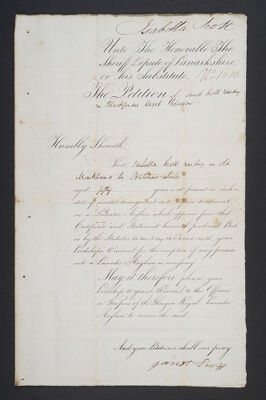 Isabella Scott
Unto The Honorable The
Sheriff Depute of Lanarkshire,
or his Substitute,
The Petition of Janet Scott residing
in Street Glasgow
Humbly Sheweth,
That Isabella Scott residing in Old
Monkland is Petitioner
aged fifty years is at present in such
a state of mental derangement as to treatment
in a Lunatic Asylum which appears from the
Certificate and Statement herewith produced That
as by the Statutes your
Lordship's Warrant for the reception of any person
into a Lunatic Asylum is necessary
May it therefore please your
Lordship to grant Warrant to the Officers
or Keepers of the Glasgow Royal Lunatic
Asylum to receive the said
And your Petitioner shall ever pray
Janet Scott